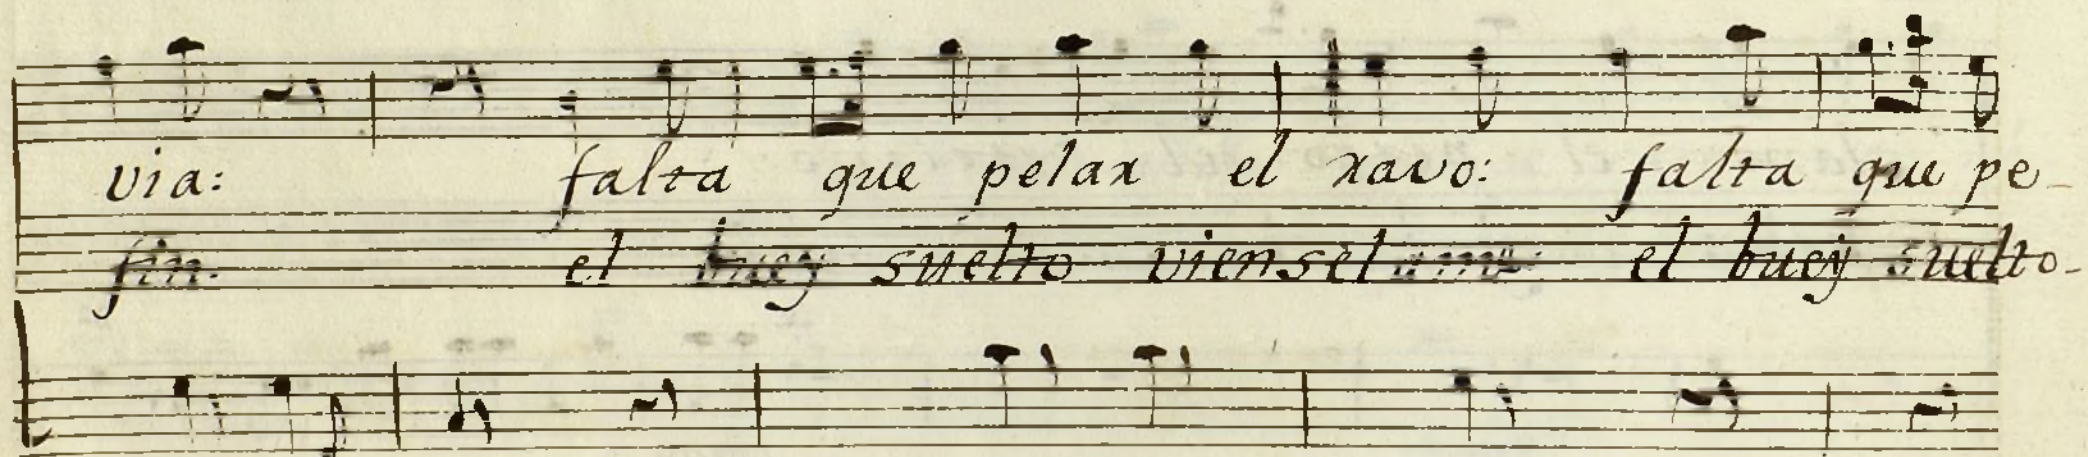 via: falta que pelar el ravo: falta que pe-
fin. el buey suelto vienselame el buey suelto-